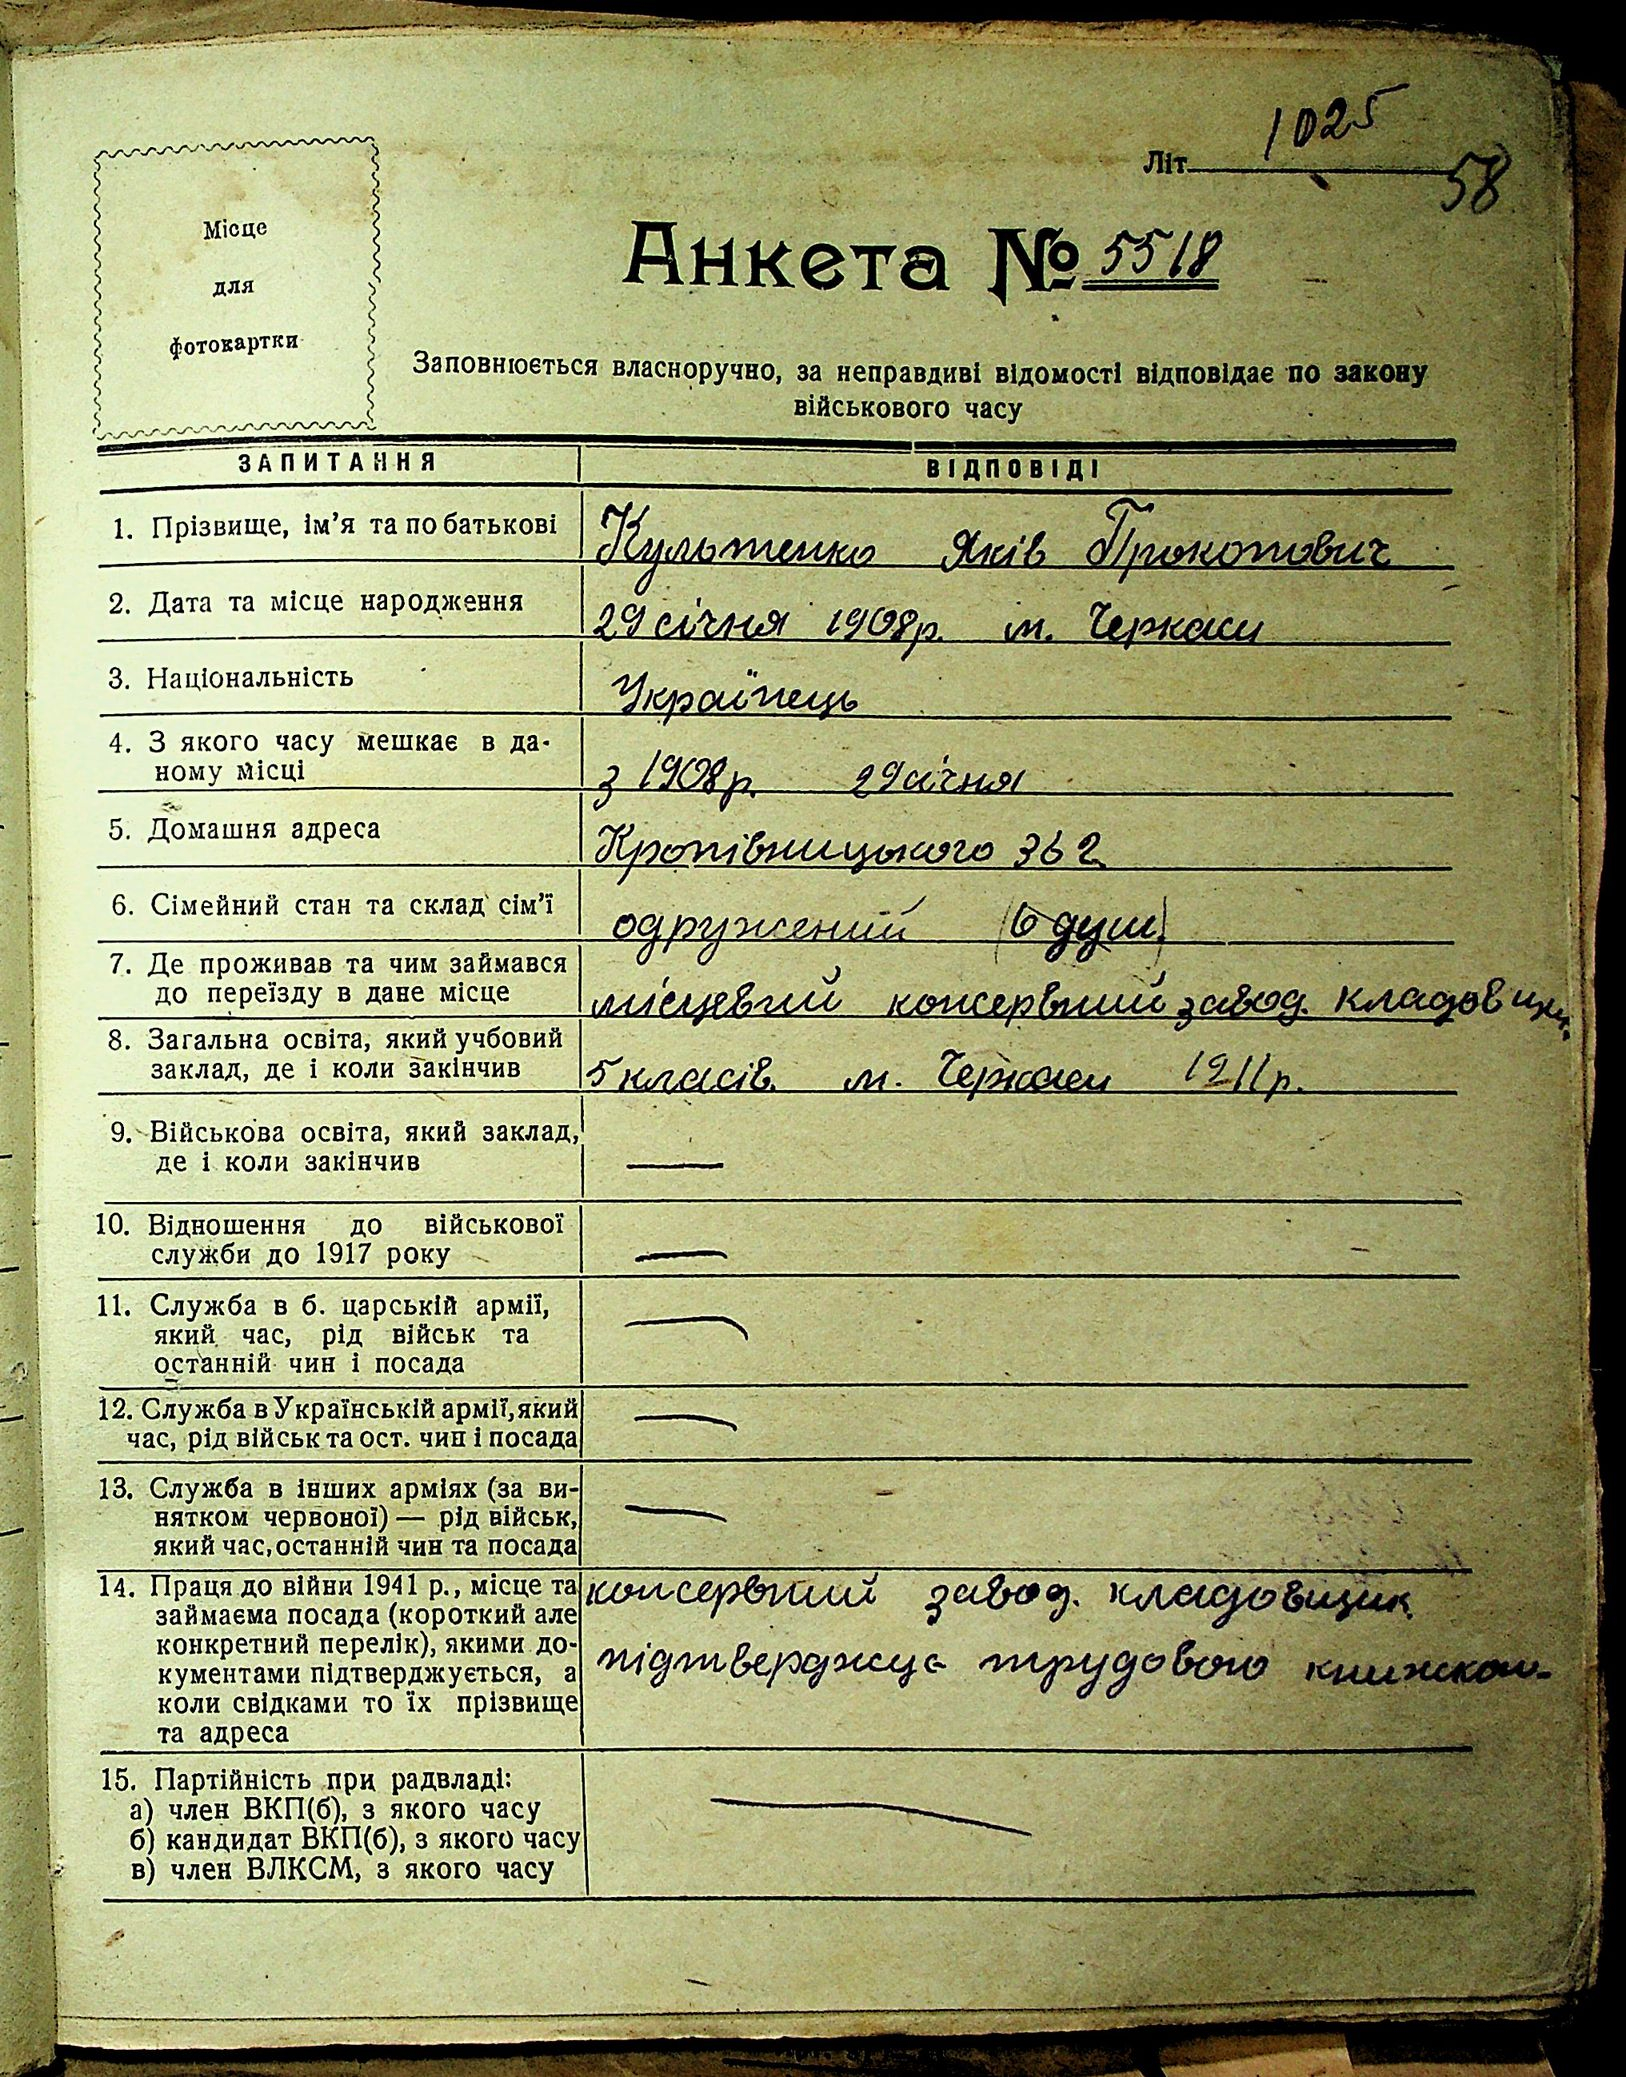 1025
Літ
58
Місце
для
фотокартки
Анкета № 5518
Заповнюється власноручно, за неправдиві відомості відповідає по закону
військового часу
ЗАПИТАННЯ ВІДПОВІДІ
1. Прізвище, ім'я та по батькові Культенко Яків Прокопович
2. Дата та місце народження 29 січня 1908р. м. Черкаси
3. Національність Українець
4. З якого часу мешкає в да-
ному місці з 1908р. 29 січня
5. Домашня адреса Кропівницького 36 2
6. Сімейний стан та склад сім'ї одружений (6 душ)
7. Де проживав та чим займався
до переїзду в дане місце місцевий консервний завод. кладовщик
8. Загальна освіта, який учбовий
заклад, де і коли закінчив 5 класів. м. Черкаси 1911р.
9. Військова освіта, який заклад,
де і коли закінчив —
10. Відношення до військової
служби до 1917 року —
11. Служба в б. царській армії,
який час, рід військ та
останній чин і посада —
12. Служба в Українській армії, який
час, рід військ та ост. чин і посада —
13. Служба в інших арміях (за ви-
нятком червоної) — рід військ,
який час, останній чин та посада —
14. Праця до війни 1941 р., місце та консервний завод. кладовщик
займаєма посада (короткий але
конкретний перелік), якими до- підтверджує трудовою книжкою
кументами підтверджується, а
коли свідками то їх прізвище
та адреса
15. Партійність при радвладі:
а) член ВКП(б), з якого часу —
б) кандидат ВКП(б), з якого часу
в) член ВЛКСМ, з якого часу